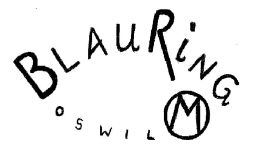 BLAURiNG
OSWIL M